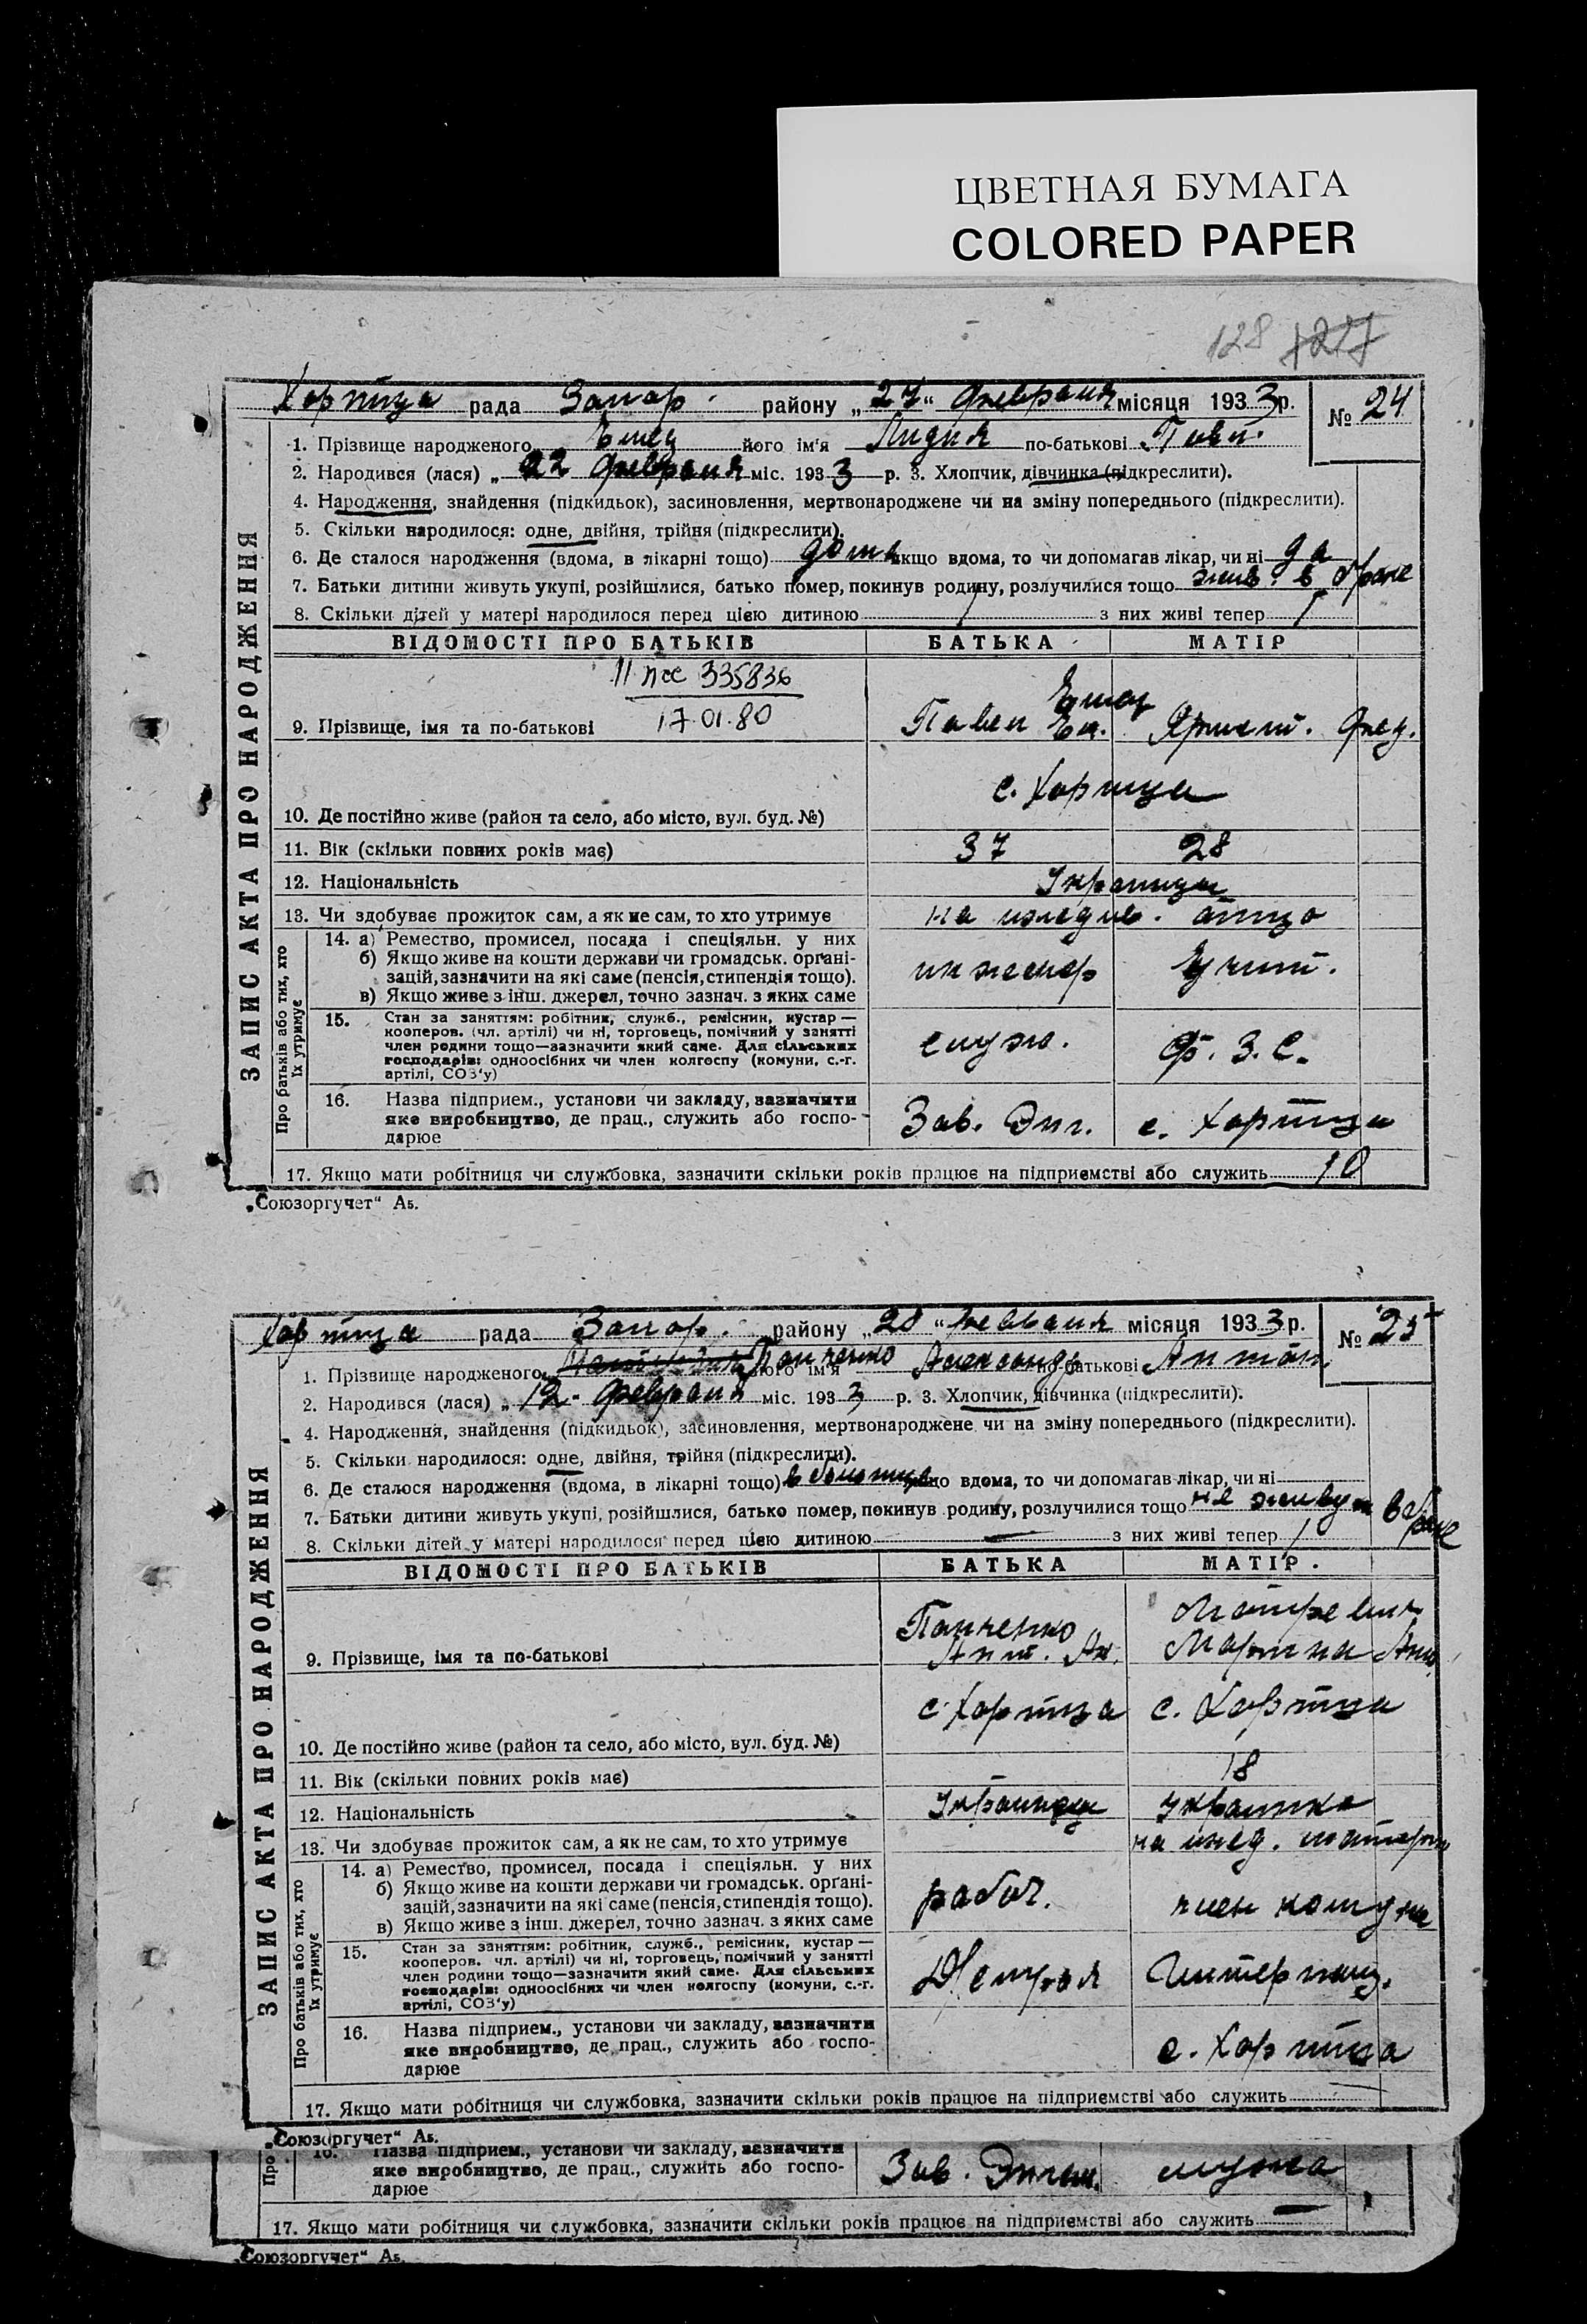 ЦВЕТНАЯ БУМАГА
COLORED PAPER
128
Хортица рада Запор. району „27“ февраля місяця 1933 р. № 24
1. Прізвище народженого Емец його ім'я Лидия по-батькові Павл.
2. Народився (лася) „22 февраля міс. 1933 р. 3. Хлопчик, дівчинка (підкреслити).
4. Народження, знайдення (підкидьок), засиновлення, мертвонароджене чи на зміну попереднього (підкреслити).
5. Скільки народилося: одне, двійня, трійня (підкреслити).
6. Де сталося народження (вдома, в лікарні тощо) дома якщо вдома, то чи допомагав лікар, чи ні да
7. Батьки дитини живуть укупі, розійшлися, батько помер, покинув родину, розлучилися тощо жив. в браке
8. Скільки дітей у матері народилося перед цією дитиною 1 з них живі тепер 1
ЗАПИС АКТА ПРО НАРОДЖЕННЯ
ВІДОМОСТІ ПРО БАТЬКІВ БАТЬКА МАТІР
335836
17.01.80
Емец
9. Прізвище, імя та по-батькові Павел Фед.
с. Хортица
10. Де постійно живе (район та село, або місто, вул. буд. №)
11. Вік (скільки повних років має) 37 28
12. Національність Украинцы
13. Чи здобуває прожиток сам, а як не сам, то хто утримує на иждив. отца
Про батьків або тих, хто їх утримує
14. а) Ремество, промисел, посада і спеціяльн. у них
б) Якщо живе на кошти держави чи громадськ. органі-
зацій, зазначити на які саме (пенсія, стипендія тощо). инженер Учит.
в) Якщо живе з інш. джерел, точно зазнач. з яких саме
15. Стан за заняттям: робітник, служб., ремісник, кустар —
кооперов. (чл. артілі) чи ні, торговець, помічний у занятті
член родини тощо—зазначити який саме. Для сільських служ. Ф. З. С.
господарів: одноосібних чи член колгоспу (комуни, с.-г.
артілі, СОЗ'у)
16. Назва підприєм., установи чи закладу, зазначити
яке виробництво, де прац., служить або госпо- Зав. Энг. с. Хортица
дарює
17. Якщо мати робітниця чи службовка, зазначити скільки років працює на підприємстві або служить 10
„Союзоргучет“ А5.
Хортица рада Запор. району „28“ февраля місяця 1933 р. № 25
1. Прізвище народженого Панченко його ім'я Александр по-батькові Антон.
2. Народився (лася) „12 февраля міс. 1933 р. 3. Хлопчик, дівчинка (підкреслити).
4. Народження, знайдення (підкидьок), засиновлення, мертвонароджене чи на зміну попереднього (підкреслити).
5. Скільки народилося: одне, двійня, трійня (підкреслити).
6. Де сталося народження (вдома, в лікарні тощо) в больнице якщо вдома, то чи допомагав лікар, чи ні
7. Батьки дитини живуть укупі, розійшлися, батько помер, покинув родину, розлучилися тощо не живут в браке
8. Скільки дітей у матері народилося перед цією дитиною — з них живі тепер 1
ЗАПИС АКТА ПРО НАРОДЖЕННЯ
ВІДОМОСТІ ПРО БАТЬКІВ БАТЬКА МАТІР
Панченко
9. Прізвище, імя та по-батькові Ант. Ан.
с. Хортица с. Хортица
10. Де постійно живе (район та село, або місто, вул. буд. №)
11. Вік (скільки повних років має) 18
12. Національність Украинец Украинка
13. Чи здобуває прожиток сам, а як не сам, то хто утримує на ижд. матери
Про батьків або тих, хто їх утримує
14. а) Ремество, промисел, посада і спеціяльн. у них
б) Якщо живе на кошти держави чи громадськ. органі-
зацій, зазначити на які саме (пенсія, стипендія тощо). рабоч. член комуны
в) Якщо живе з інш. джерел, точно зазнач. з яких саме
15. Стан за заняттям: робітник, служб., ремісник, кустар —
кооперов. чл. артілі) чи ні, торговець, помічний у занятті
член родини тощо—зазначити який саме. Для сільських Интернац.
господарів: одноосібних чи член колгоспу (комуни, с.-г.
артілі, СОЗ'у)
16. Назва підприєм., установи чи закладу, зазначити
яке виробництво, де прац., служить або госпо- с. Хортица
дарює
17. Якщо мати робітниця чи службовка, зазначити скільки років працює на підприємстві або служить —
„Союзоргучет“ А5.
16. Назва підприєм., установи чи закладу, зазначити
яке виробництво, де прац., служить або госпо- Зав. мужа
дарює
17. Якщо мати робітниця чи службовка, зазначити скільки років працює на підприємстві або служить —
„Союзоргучет“ А5.